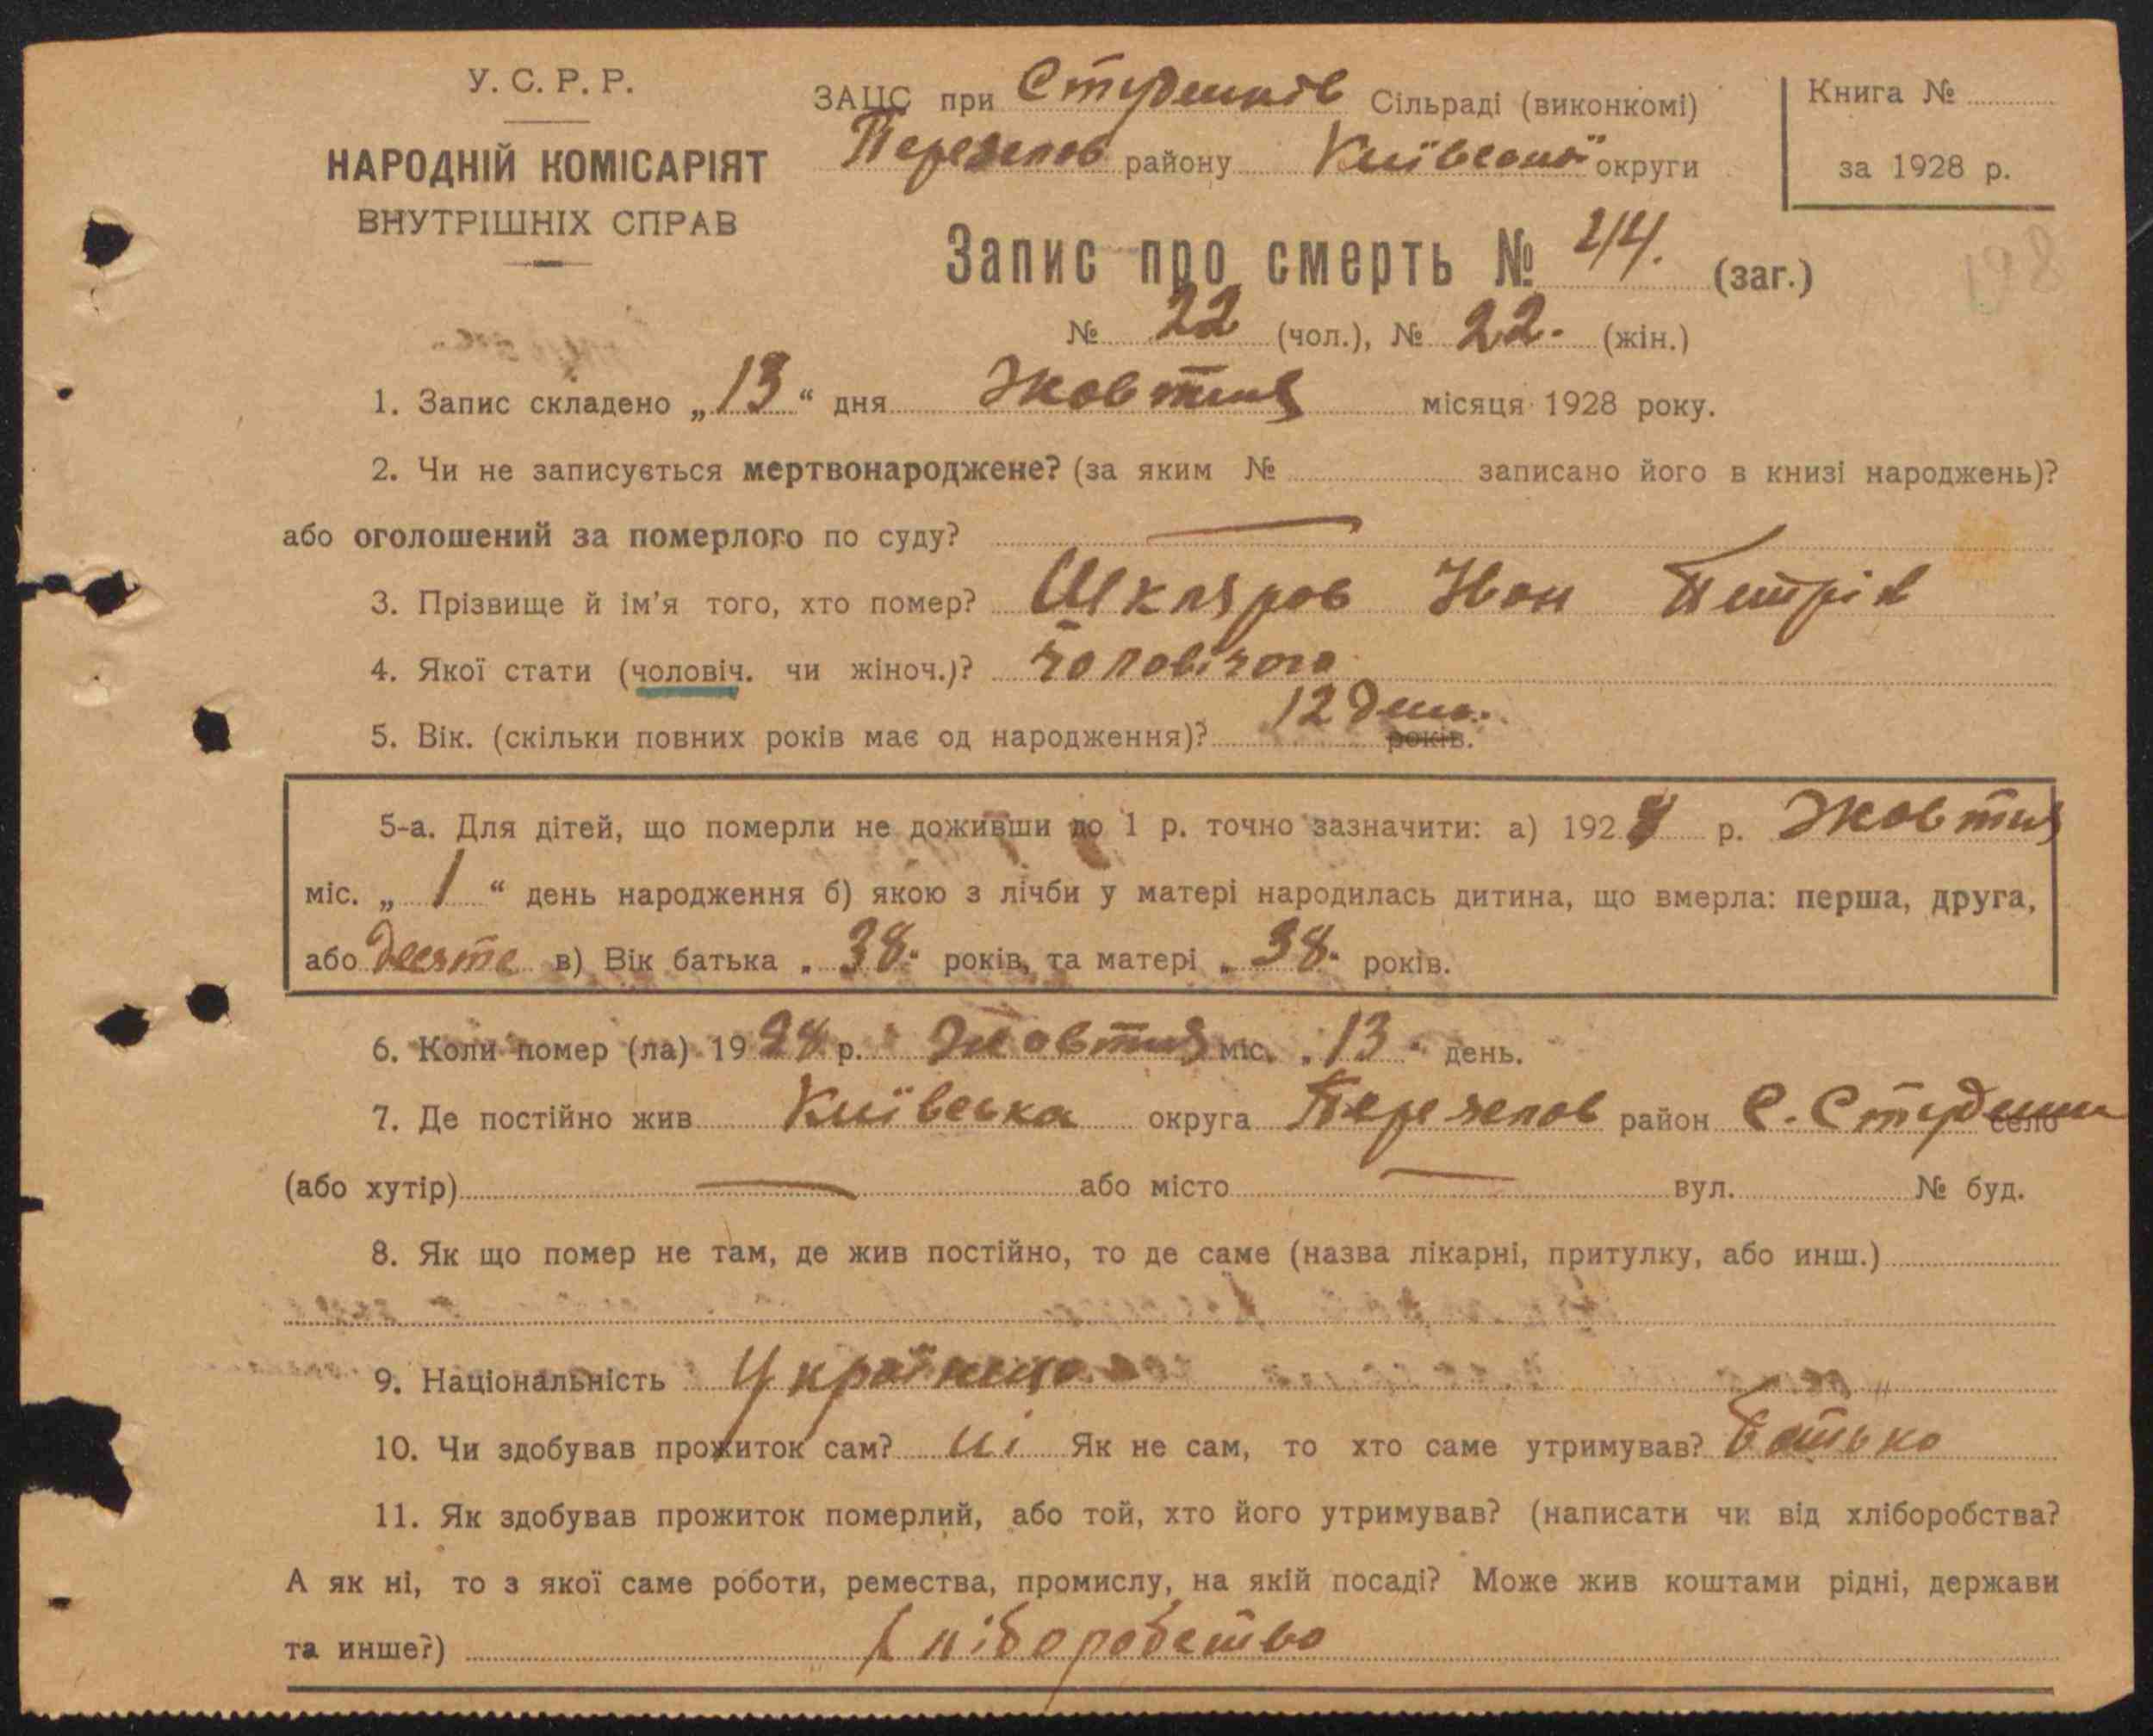 У. С. Р. Р.
НАРОДНІЙ КОМІСАРІЯТ
ВНУТРІШНІХ СПРАВ
ЗАЦС при Студеників Сільраді (виконкомі)
Переяслов району Київської округи
Книга №
за 1928 р.
Запис про смерть № 44. (заг.)
№ 22 (чол.), № 22. (жін.)
1. Запис складено „13“ дня Жовтня місяця 1928 року.
2. Чи не записується мертвонароджене? (за яким № записано його в книзі народжень)?
або оголошений за померлого по суду? —
3. Прізвище й ім'я того, хто помер? Шкляров Іван Петрів
4. Якої стати (чоловіч. чи жіноч.)? Чоловічого
5. Вік. (скільки повних років має од народження)? 12 ден. років.
5-а. Для дітей, що померли не доживши до 1 р. точно зазначити: а) 1928 р. Жовтня
міс. „1“ день народження б) якою з лічби у матері народилась дитина, що вмерла: перша, друга,
або десяте в) Вік батька „38“ років, та матері „38“ років.
6. Коли помер (ла) 1928 р. Жовтня міс. „13“ день.
7. Де постійно жив Київська округа Переяслов район С. Студени село
(або хутір) — або місто — вул. № буд.
8. Як що помер не там, де жив постійно, то де саме (назва лікарні, притулку, або инш.)
9. Національність
10. Чи здобував прожиток сам? ні Як не сам, то хто саме утримував? Батько
11. Як здобував прожиток померлий, або той, хто його утримував? (написати чи від хліборобства?
А як ні, то з якої саме роботи, ремества, промислу, на якій посаді? Може жив коштами рідні, держави
та инше?) Хліборобство